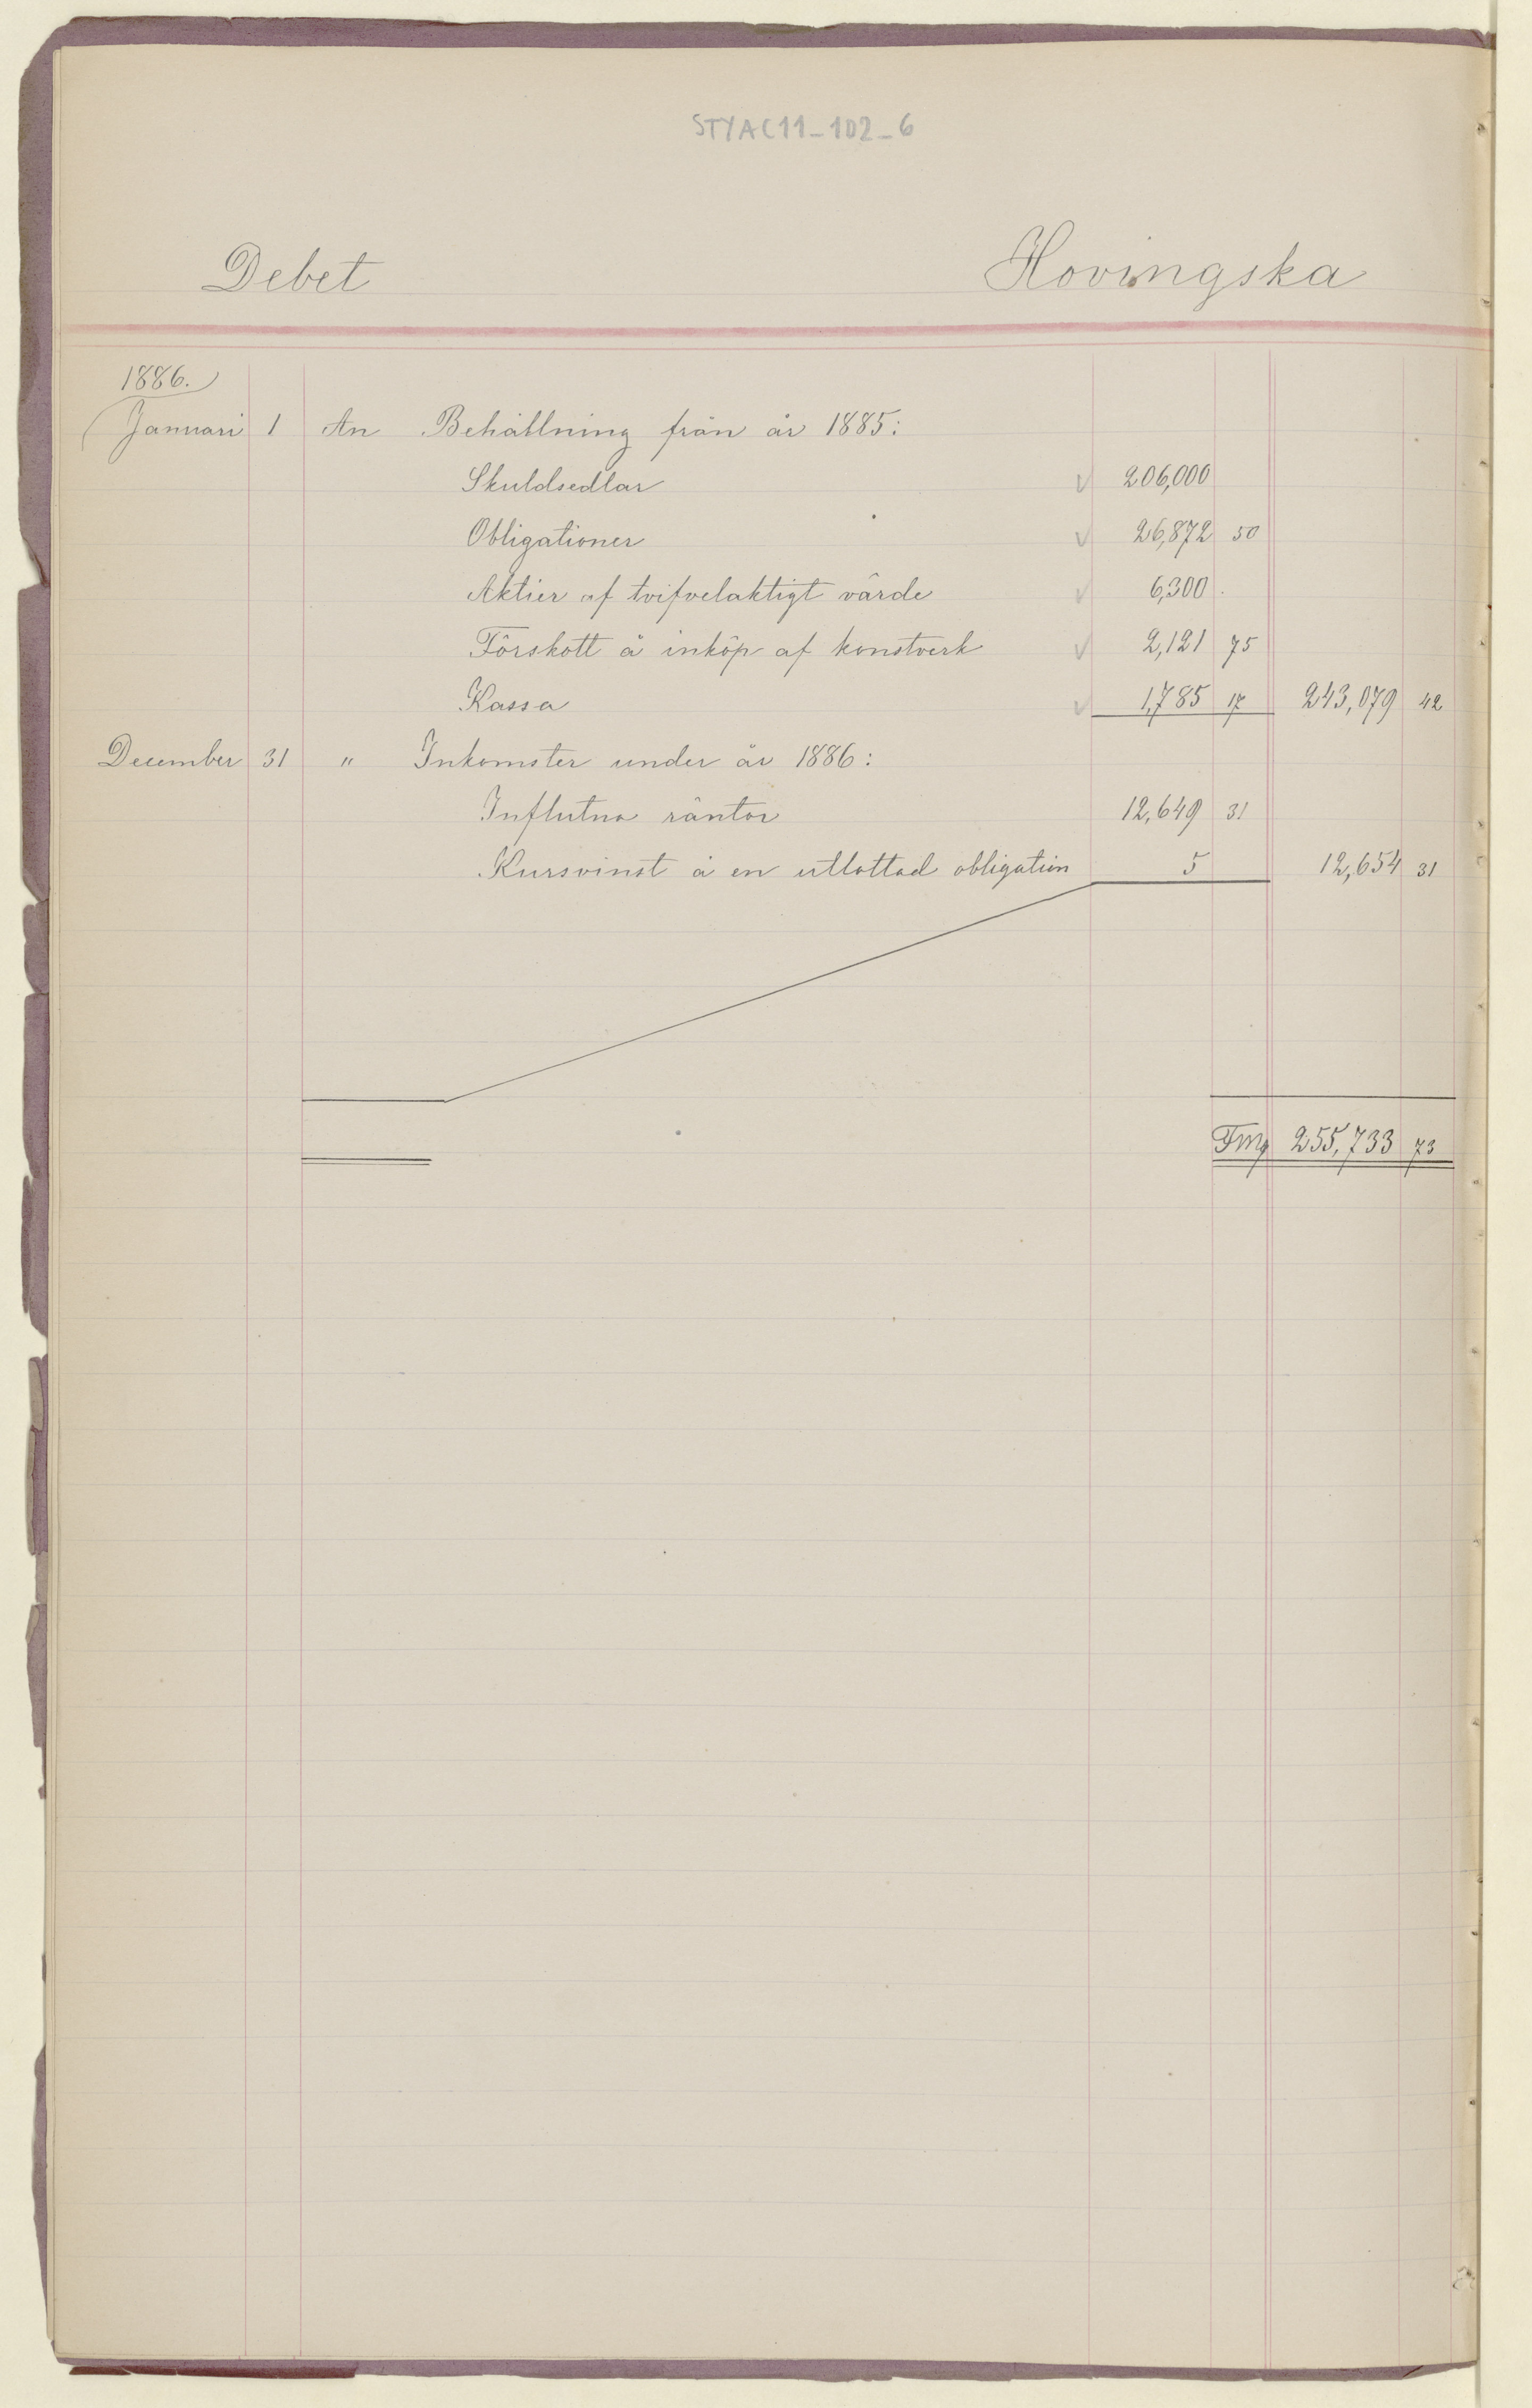 STYAC11_1D2_6
Debet Hovingska
1886.
Januari 1 An Behållning från år 1885:
Skuldsedlar 206,000
Obligationer 26,872 50
Aktier af tvifvelaktigt värde 6,300
Förskott å inköp af konstverk 2,121 75
Kassa 1,785 17 243,079 42
December 31 " Inkomster under år 1886:
Influtna räntor 12,649 31
Kursvinst å en utlottad obligation 5 12,654 31
Fmg 255,733 73